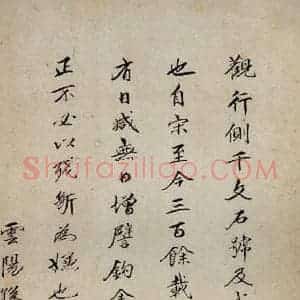 觀行側千文石號及
也自宋至今三百餘載
有日減無日增譬鈞金
正不必以殘斷為嫌也
雲陽
Shufaziliao.com